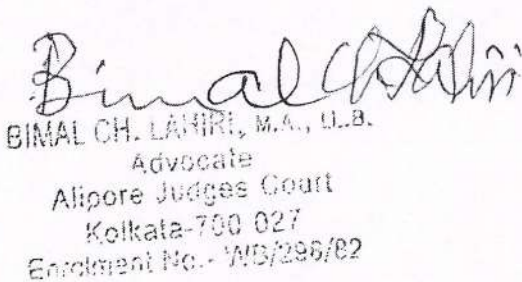 Bimal Ch Lahiri
BIMAL CH. LAHIRI, M.A., LL.B.
Advocate
Alipore Judges Court
Kolkata-700 027
Enrolment No.- WB/296/82